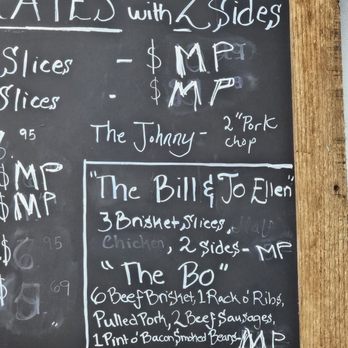 ATES with 2 Sides
Slices - $ MP
Slices - $ MP
.95
The Johnny - 2" Pork
chop
$MP
$MP
"The Bill & Jo Ellen"
3 Brisket Slices, Half
Chicken, 2 sides - MP
$ 95
$ 69
"The Bo"
6 Beef Brisket, 1 Rack o' Ribs,
Pulled Pork, 2 Beef Sausages,
1 Pint o' Bacon Smoked Beans MP